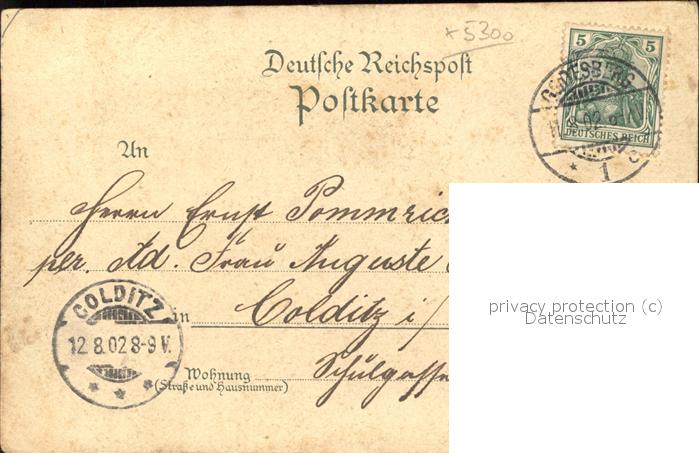 × 5300
5 5
DEUTSCHES REICH
GODESBERG
* 1
Deutsche Reichspost
Postkarte
An
Herrn Ernst Pommrich
per. Ad. Frau Auguste
in Colditz i/
Wohnung Schulgasse
(Straße und Hausnummer)
COLDITZ
12.8.02 8-9 V.
* * *
privacy protection (c)
Datenschutz